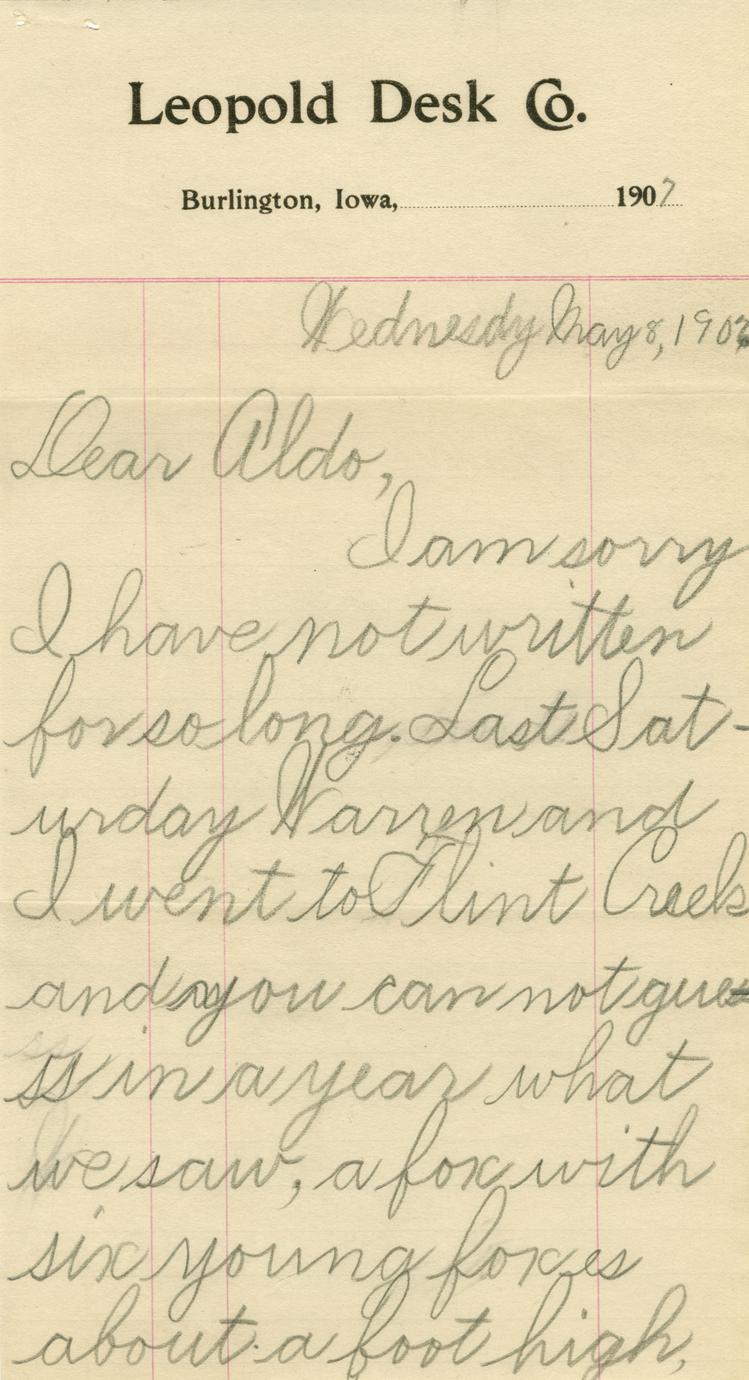 Leopold Desk Co.
Burlington, Iowa, 1907
Wednesdy May 8, 1907
Dear Aldo,
I am sorry
I have not written
for so long. Last Sat-
urday Warren and
I went to Flint Creek
and you can not gue-
ss in a year what
we saw, a fox with
six young foxes
about a foot high,